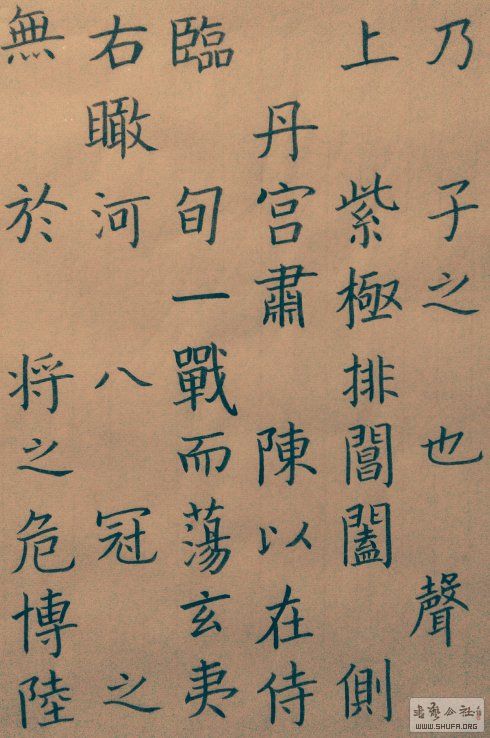 乃 子之 也 聲
上 紫極排閶闔 側
丹宫肅 陳以在侍
臨 旬一戰而蕩玄夷
右瞰河 八 冠 之
無 於 将之危博陸
WWW.SHUFA.ORG